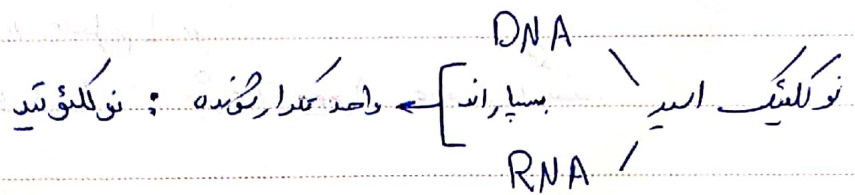 DNA
نوکلئیک اسید بسپاراند ← واحد تکرار شونده : نوکلئوتید
RNA